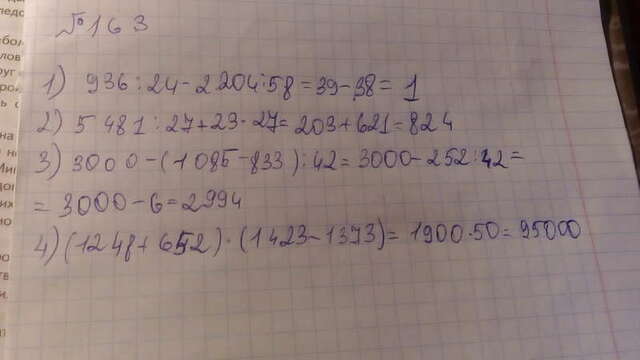 №163
1) 936:24-2204:58=39-38=1
2) 5481:27+23·27=203+621=824
3) 3000-(1085-833):42=3000-252:42=
=3000-6=2994
4) (1248+652)·(1423-1373)=1900·50=95000